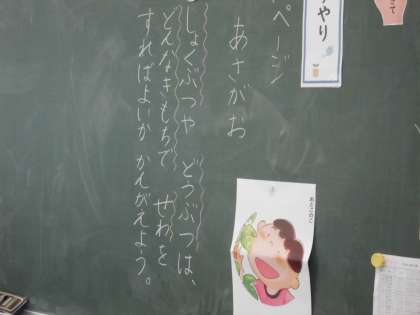 やり
ページ
あさがお
しょくぶつや どうぶつは、
どんなきもちで せわを
すればよいか かんがえよう。
おとこのこ